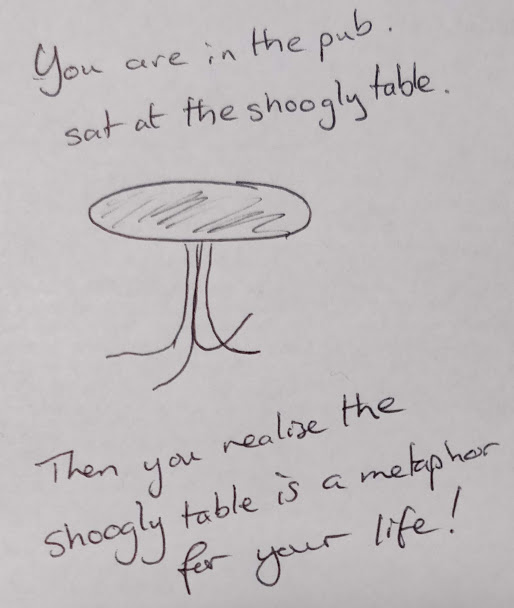 You are in the pub.
sat at the shoogly table.
Then you realise the
shoogly table is a metaphor
for your life!